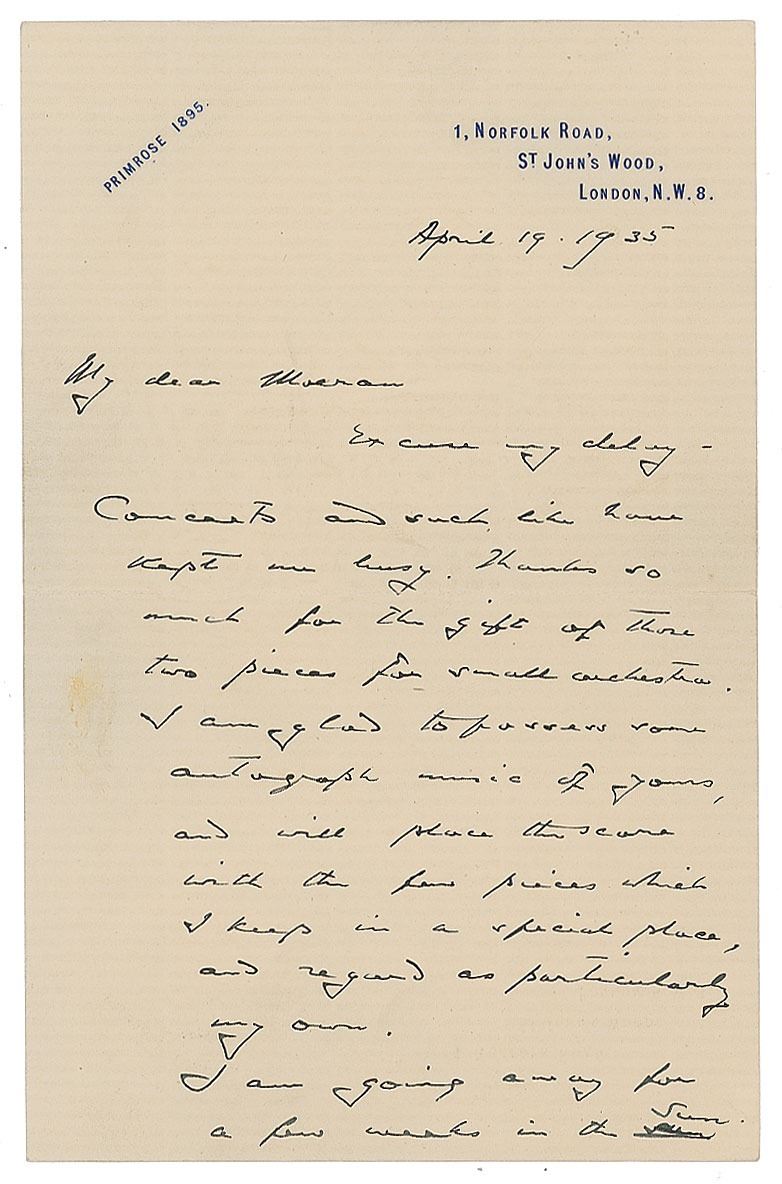 PRIMROSE 1895.
1, NORFOLK ROAD,
ST JOHN'S WOOD,
LONDON, N.W. 8.
April 19. 1935
My dear Moeran
Excuse my delay –
Concerts and such like have
kept me busy. Thanks so
much for the gift of those
two pieces for small orchestra.
I am glad to possess some
autograph music of yours,
and will place the score
with the few pieces which
I keep in a special place,
and regard as particularly
my own.
I am going away for
a few weeks in the Sun.